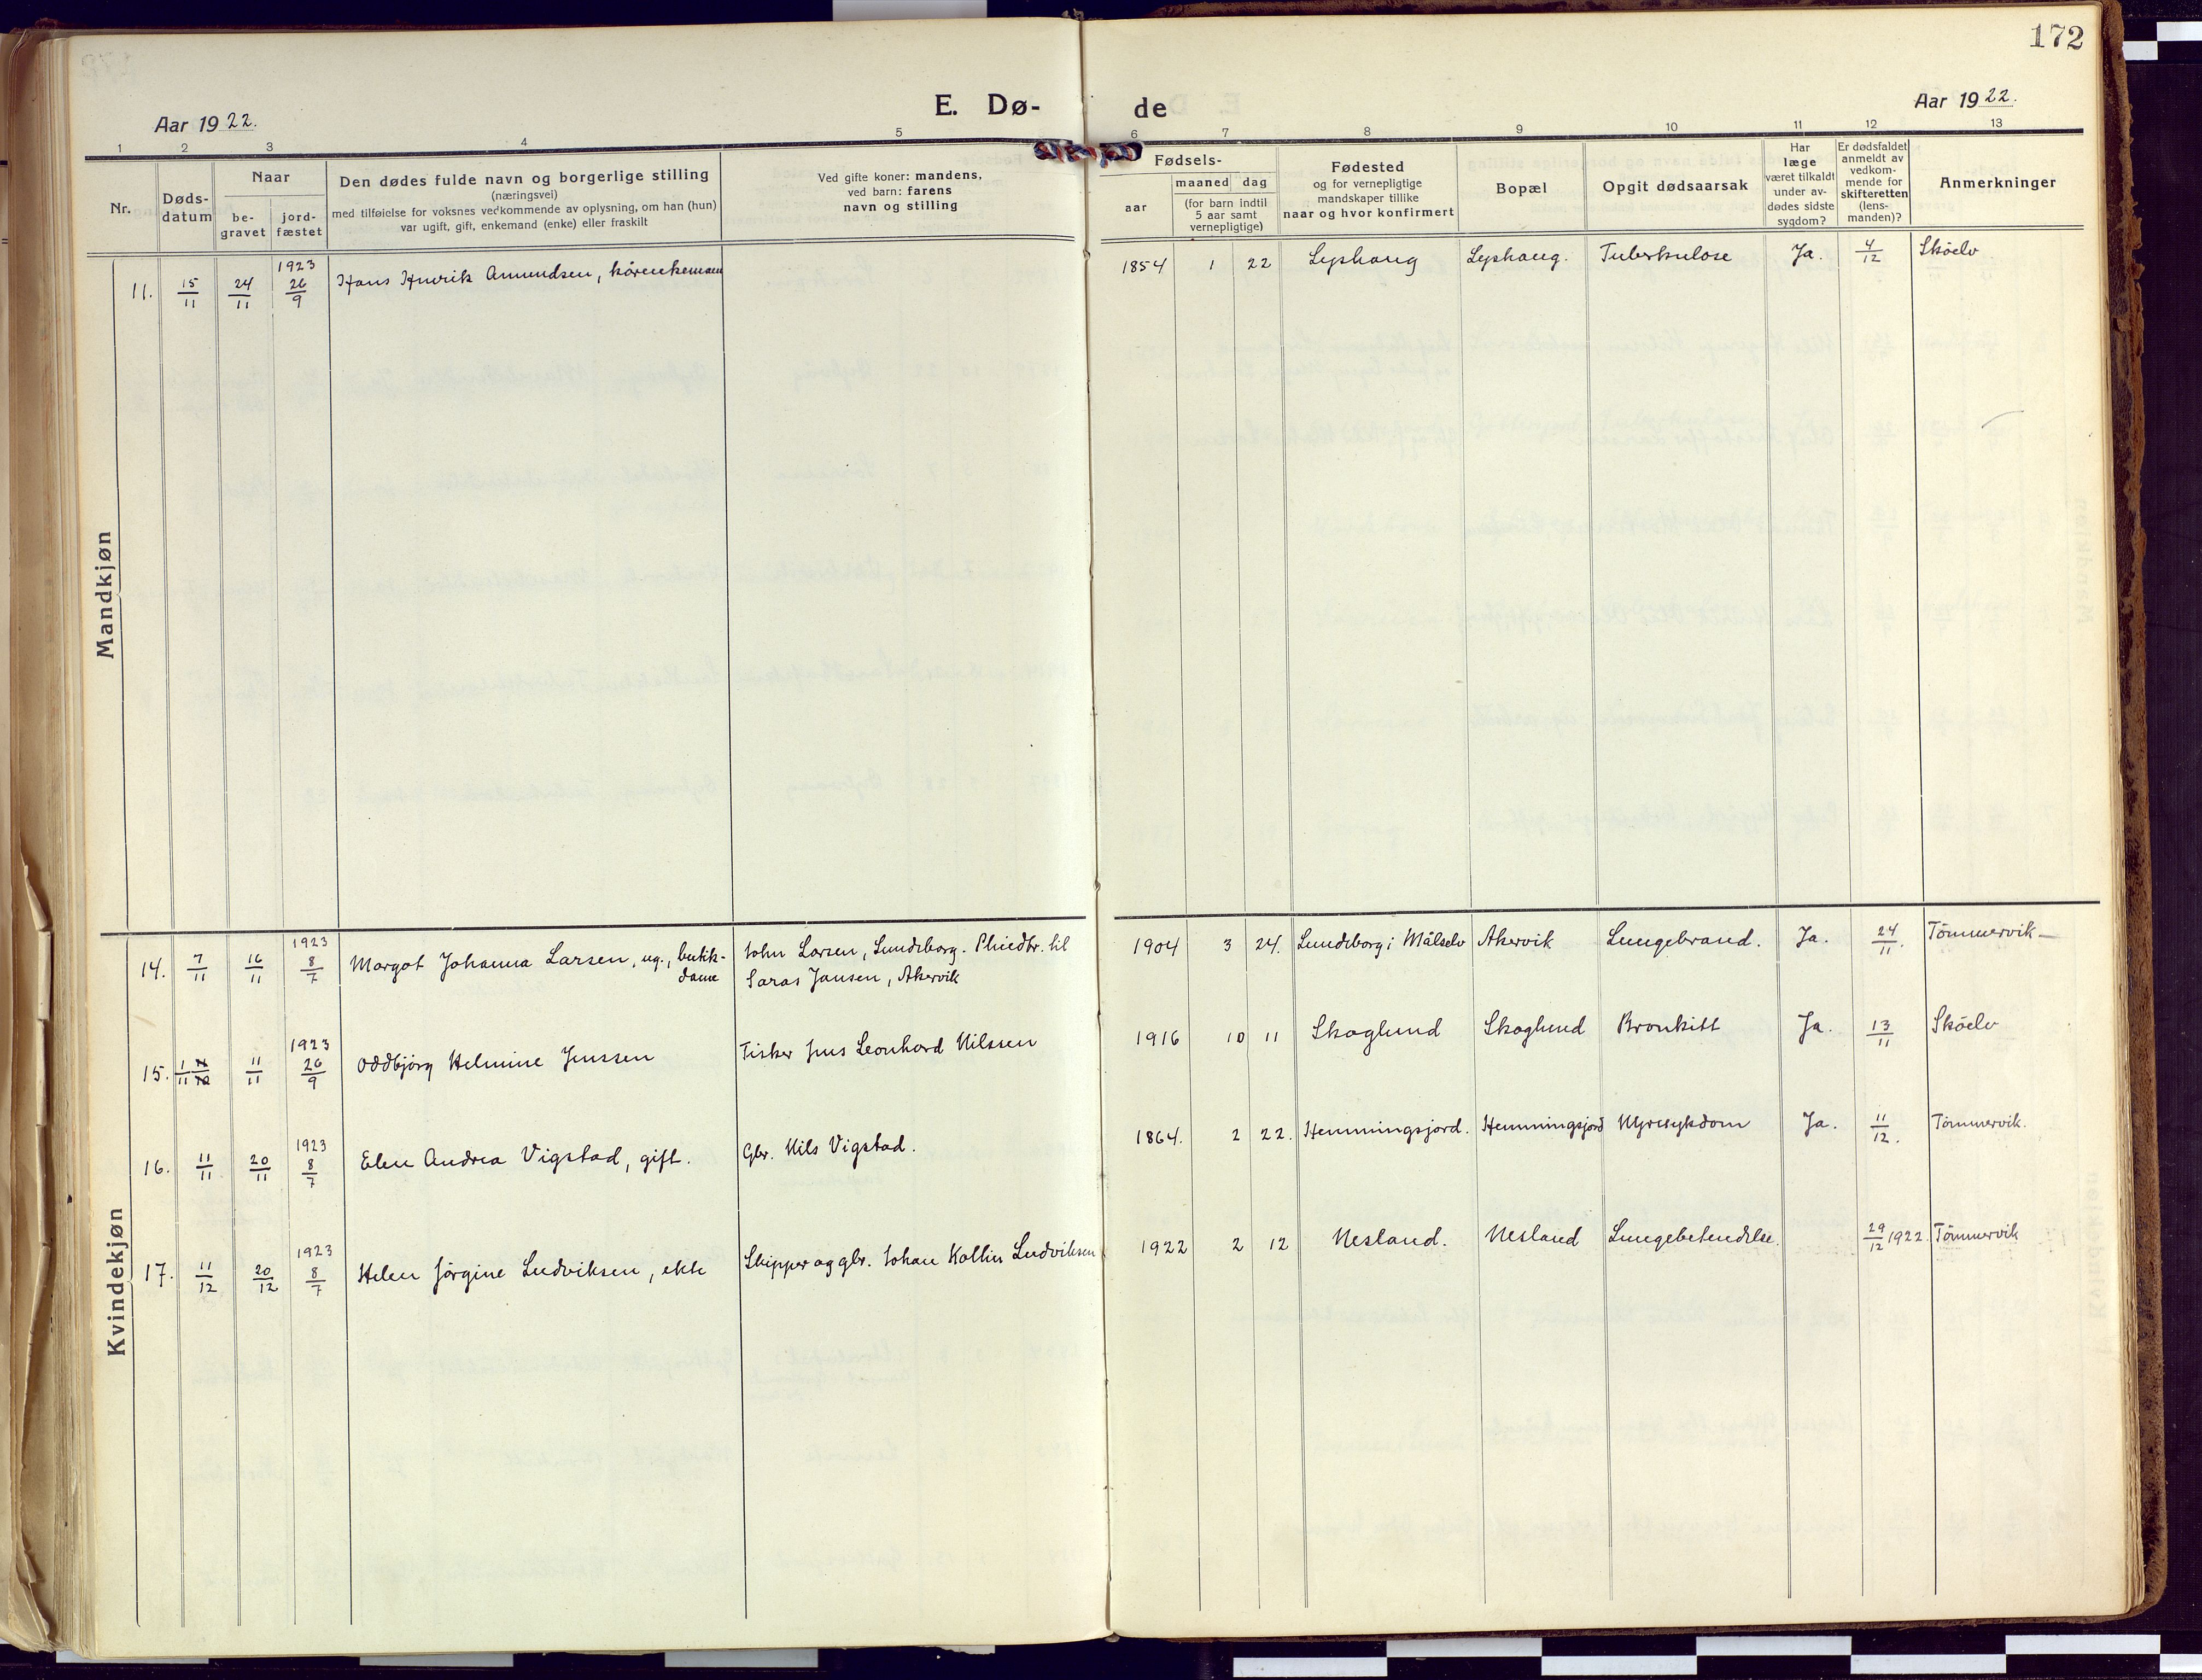 172
Aar 1922.
E. Dø-
de
Aar 1922.
1 2 3 4 5 6 7 8 9 10 11 12 13
Nr.
Døds-
datum
Naar
be-
gravet
jord-
fæstet
Den dødes fulde navn og borgerlige stilling
(næringsvei)
med tilføielse for voksnes vedkommende av oplysning, om han (hun)
var ugift, gift, enkemand (enke) eller fraskilt
Ved gifte koner: mandens,
ved barn: farens
navn og stilling
Fødsels-
aar
maaned dag
(for barn indtil
5 aar samt
vernepligtige)
Fødested
og for vernepligtige
mandskaper tillike
naar og hvor konfirmert
Bopæl
Opgit dødsaarsak
Har
læge
været tilkaldt
under av-
dødes sidste
sygdom?
Er dødsfaldet
anmeldt av
vedkom-
mende for
skifteretten
(lens-
manden)?
Anmerkninger
Mandkjøn
11. 15/11 24/11 1923 26/9 Hans Henrik Amundsen, kårenkemann 1854 1 22 Lyshaug Lyshaug. Tuberkulose Ja. 4/12 Sköelv
Kvindekjøn
14. 7/11 16/11 1923 8/7 Margot Johanna Larsen, ug., butik- John Larsen, Lundeborg. til 1904 3 24. Lundeborg i Målselv Akervik Lungebrand. Ja. 24/11. Tömmervik
dame Saras Jansen, Akervik
15. 1/11 11/11 1923 26/9 Oddbjörg Helmine Jenssen Fisker Jens Leonhard Nilssen 1916 10 11 Skoglund Skoglund Bronkitt Ja. 13/11 Sköelv
16. 11/11 20/11 1923 8/7 Elen Andrea Vigstad, gift. Gbr. Nils Vigstad. 1864. 2 22. Hemmingsjord. Hemmingsjord Nyresykdom Ja. 11/12. Tömmervik.
17. 11/12 20/12 1923 8/7 Helen Jörgine Ludviksen, ekte Skipper og gbr. Johan Kollin Ludviksen 1922 2 12 Nesland. Nesland Lungebetendelse. 29/12 1922. Tömmervik